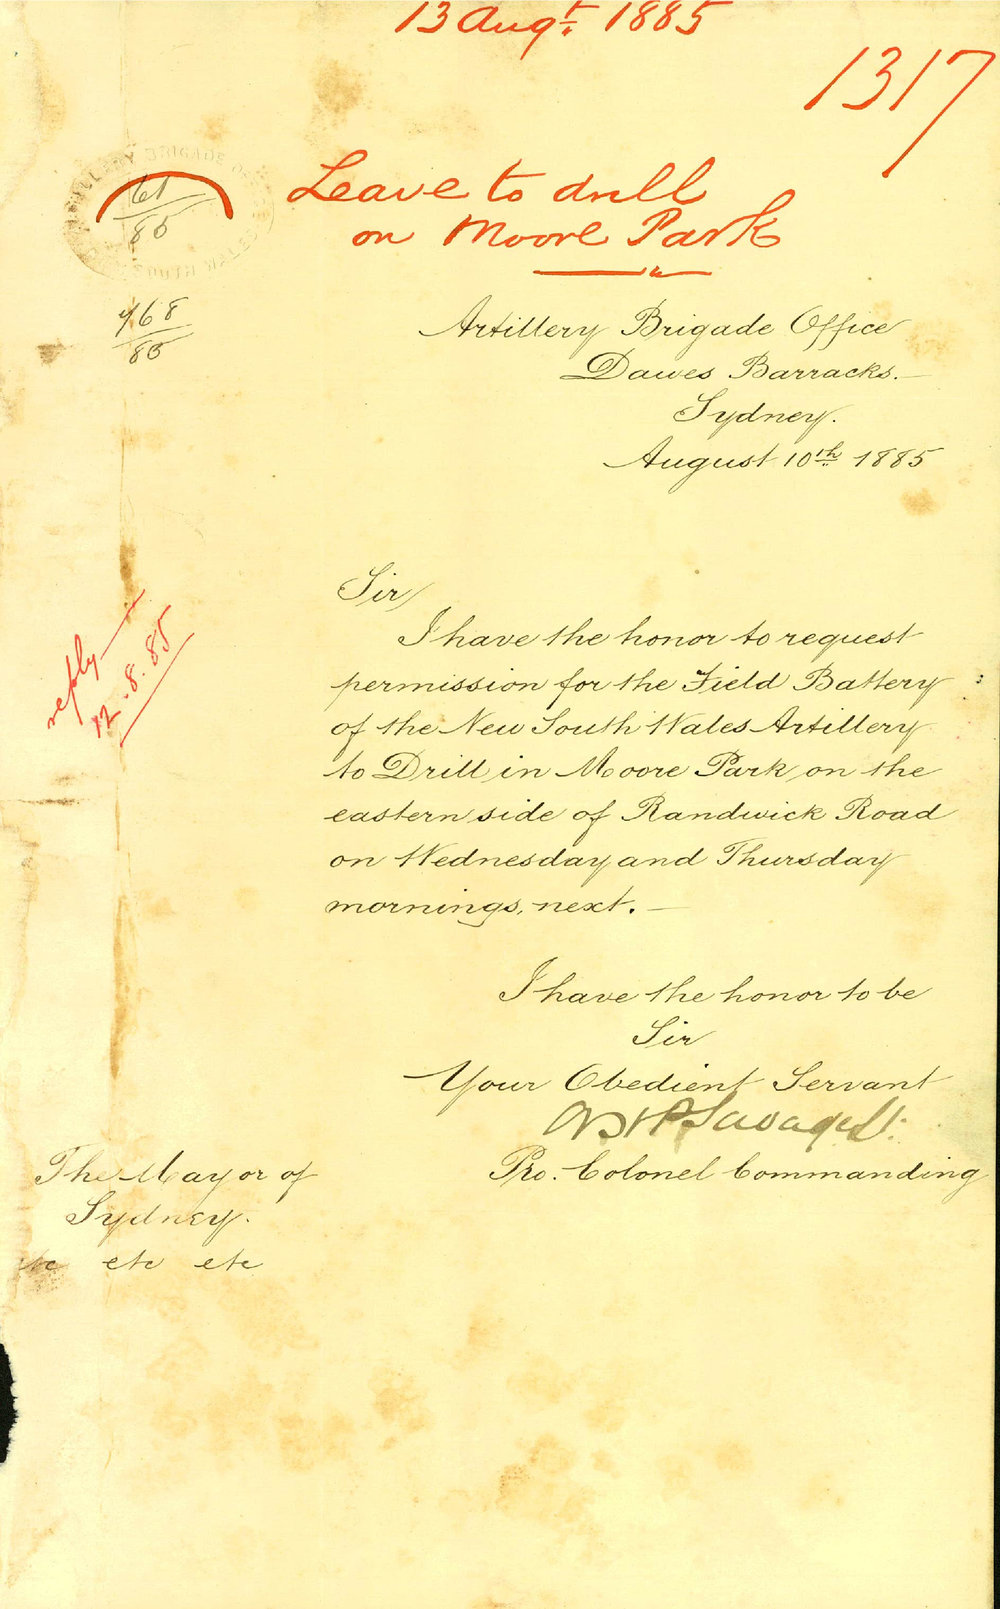 13 Augt. 1885
1317
Leave to drill
on Moore Park
ARTILLERY BRIGADE OFFICE
61
85
SOUTH WALES
768
85
Artillery Brigade Office
Dawes Barracks.
Sydney.
August 10th 1885
Sir,
I have the honor to request
permission for the Field Battery
of the New South Wales Artillery
to Drill in Moore Park, on the
eastern side of Randwick Road
on Wednesday and Thursday
mornings, next.
reply
12.8.85
I have the honor to be
Sir
Your Obedient Servant
Savage Lt.
Pro. Colonel Commanding
The Mayor of
Sydney.
etc etc etc